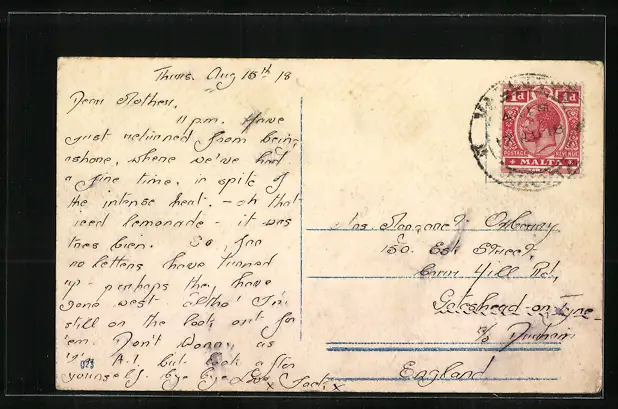 Thurs. Aug 15th 18
Dear Mother,
11 p.m. Have
just returned from being
ashore, where we've had
a fine time, in spite of
the intense heat. - oh that
iced lemonade - it was
tres bien. So far
no letters have turned
up - perhaps they have
gone west - altho' I'm
still on the look out for
'em. Don't worry, as
I'm A.1. but look after
yourself. Bye bye Love Jack x x
023
1d 1d
POSTAGE REVENUE
MALTA
Mrs. Margaret
150. Street,
Hill Rd,
Gateshead-on-Tyne
c/o Durham
England